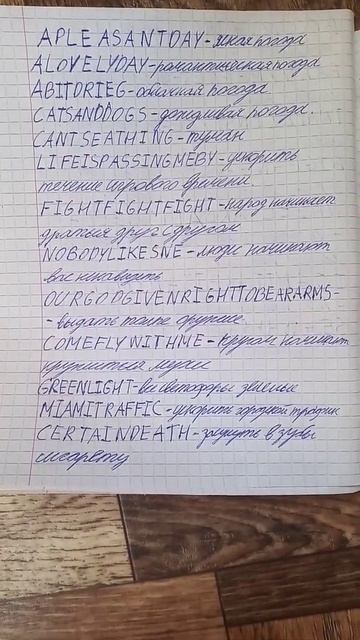 APLEASANTDAY-ясная погода
ALOVELYDAY-романтическая погода
ABITDRIEG-облачная погода
CATSANDDOGS-дождливая погода.
CANTSEATHING-туман
LIFEISPASSINGMEBY-ускорить
течение игрового времени.
FIGHTFIGHTFIGHT-народ начинает
драться друг с другом
NOBODYLIKESNE-люди начинают
вас ненавидеть
OURGODGIVENRIGHTTOBEARARMS-
-выдать толпе оружие
COMEFLYWITHME-кругом начинают
кружиться мухи
GREENLIGHT-все светофоры зеленые
MIAMITRAFFIC-ускорить городской трафик
CERTAINDEATH-засунуть в зубы
сигарету